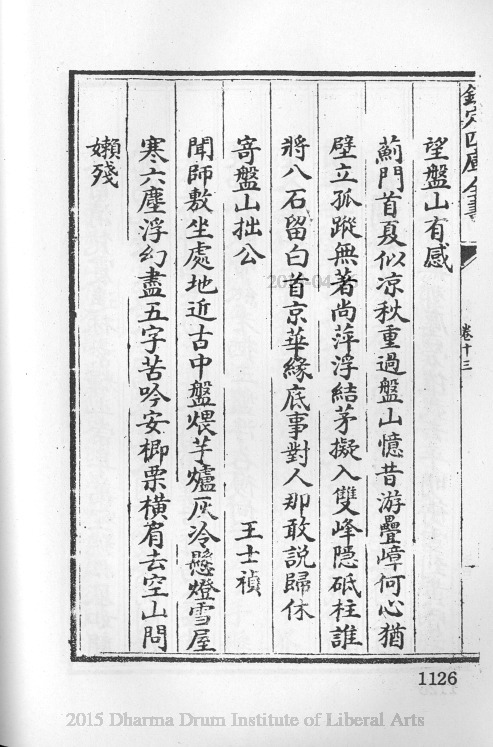 欽定四庫全書
卷十三
望盤山有感
薊門首夏似凉秋重過盤山憶昔游疊嶂何心猶
壁立孤蹤無著尚萍浮結茅擬入雙峰隠砥柱誰
將八石留白首京華緣底事對人那敢説歸休
寄盤山拙公
王士禎
聞師敷坐處地近古中盤煨芋爐灰冷懸燈雪屋
寒六塵浮幻盡五字苦吟安榔栗橫肩去空山問
嬾殘
1126
2015 Dharma Drum Institute of Liberal Arts